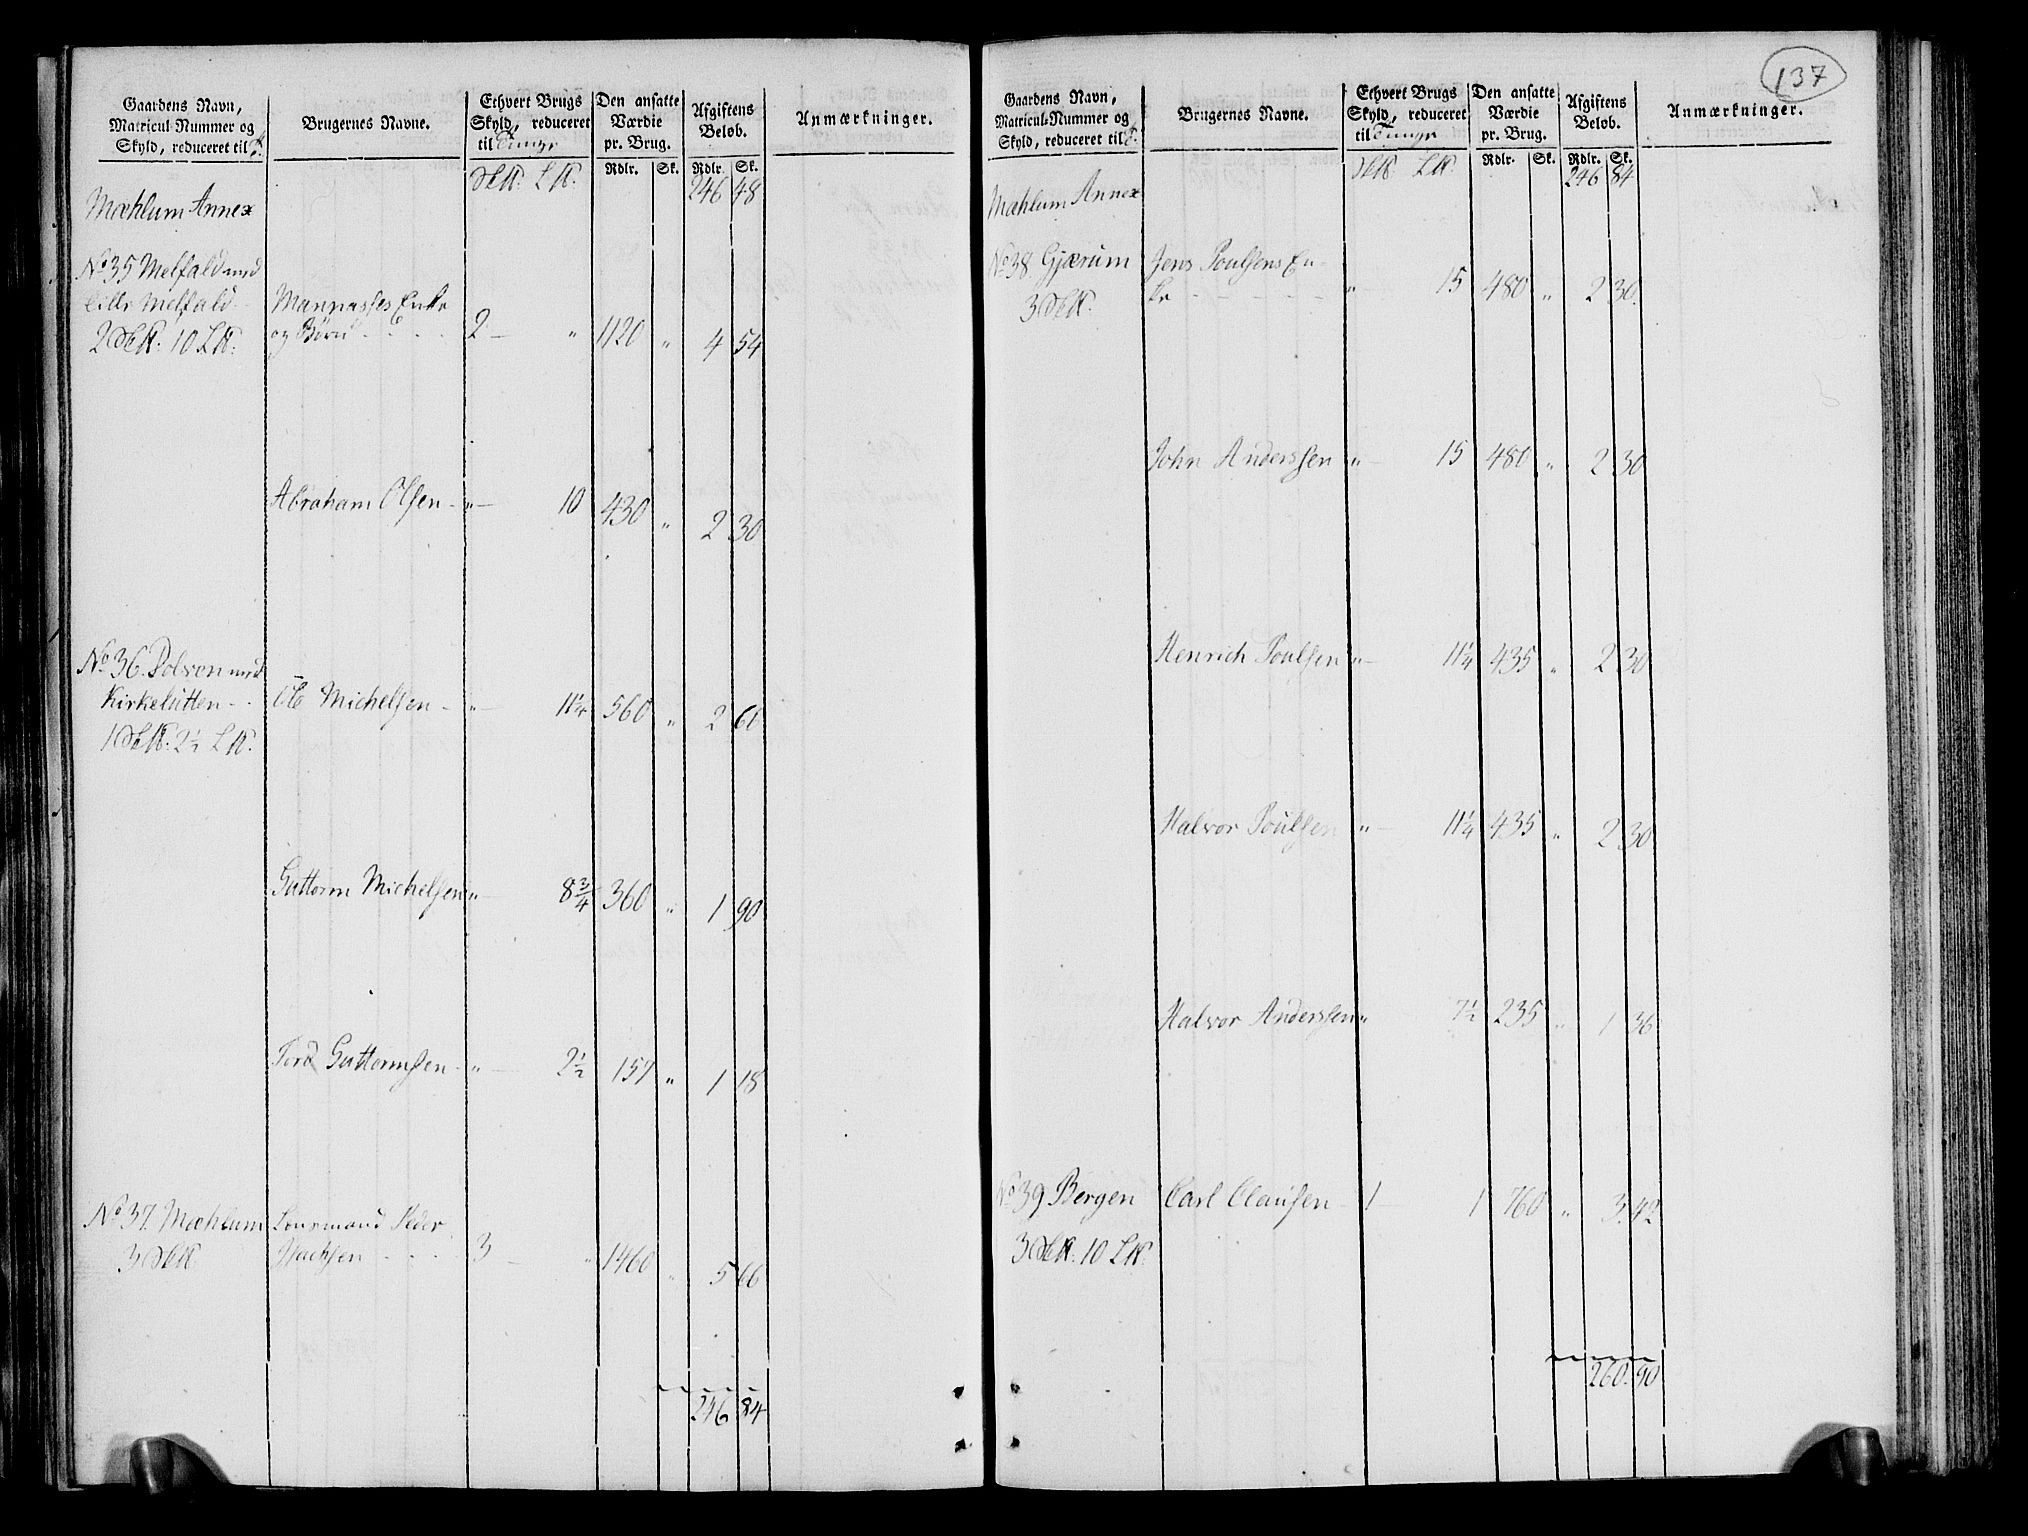 Gaardens Navn, Matricul-Nummer og Skyld, reduceret til
Brugernes Navne.
Ethvert Brugs Skyld, reduceret til Tunge
Den ansatte Værdie pr. Brug.
Afgiftens Beløb.
Anmærkninger.
Rdlr. Sk. Rdlr. Sk.
Mæhlum Annex 246 48
No 35 Melfald med
Lille Melfald Mannasses Enke
2 10 og Børn 2 " 1120 " 4 54
Abraham Olsen " 10 430 " 2 30
No 36 Dolven med
Kirketutten Ole Michelsen " 11¼ 560 " 2 60
1 2½
Guttorm Michelsen " 8¾ 360 " 1 90
Tord Guttormsen " 2½ 157 " 1 18
No 37 Mæhlum Peder
3 3 " 1460 " 5 66
246 84
137
Gaardens Navn, Matricul-Nummer og Skyld, reduceret til
Brugernes Navne.
Ethvert Brugs Skyld, reduceret til Tunge
Den ansatte Værdie pr. Brug.
Afgiftens Beløb.
Anmærkninger.
Rdlr. Sk. Rdlr. Sk.
Mæhlum Annex 246 84
No 38 Gjærum Jens Poulsens En-
3 ke " 15 480 " 2 30
John Anderssen " 15 480 " 2 30
Henrich Poulsen " 11¼ 435 " 2 30
Halvor Poulsen " 11¼ 435 " 2 30
Halvor Anderssen " 7½ 235 " 1 36
No 39 Bergen Carl Clausen 1 1 760 " 3 42
3 10
260 90